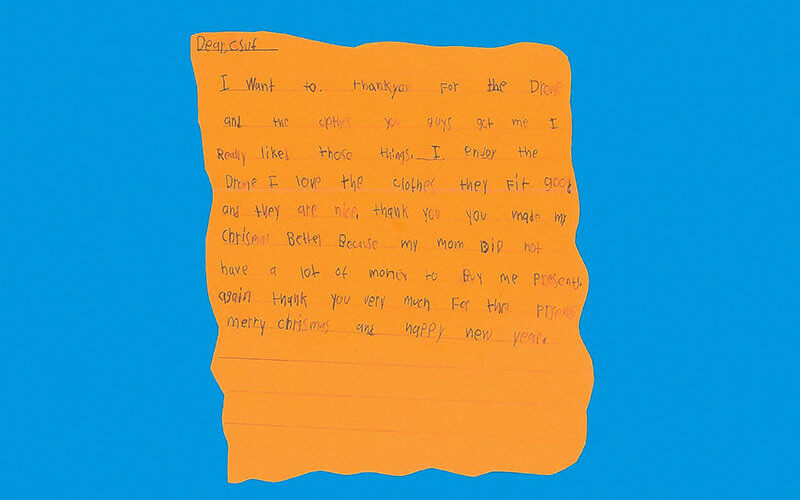 Dear, csuf
I Want to. thankyou For the Drone
and the clothes you guys got me I
Really liked those things. I enjoy the
Drone I love the clothes they Fit good
and they are nice. thank you you made my
Chrismas Better Because my mom DiD not
have a lot of money to Buy me presents.
again thank you very much For the presents
merry chrismas and happy new year.